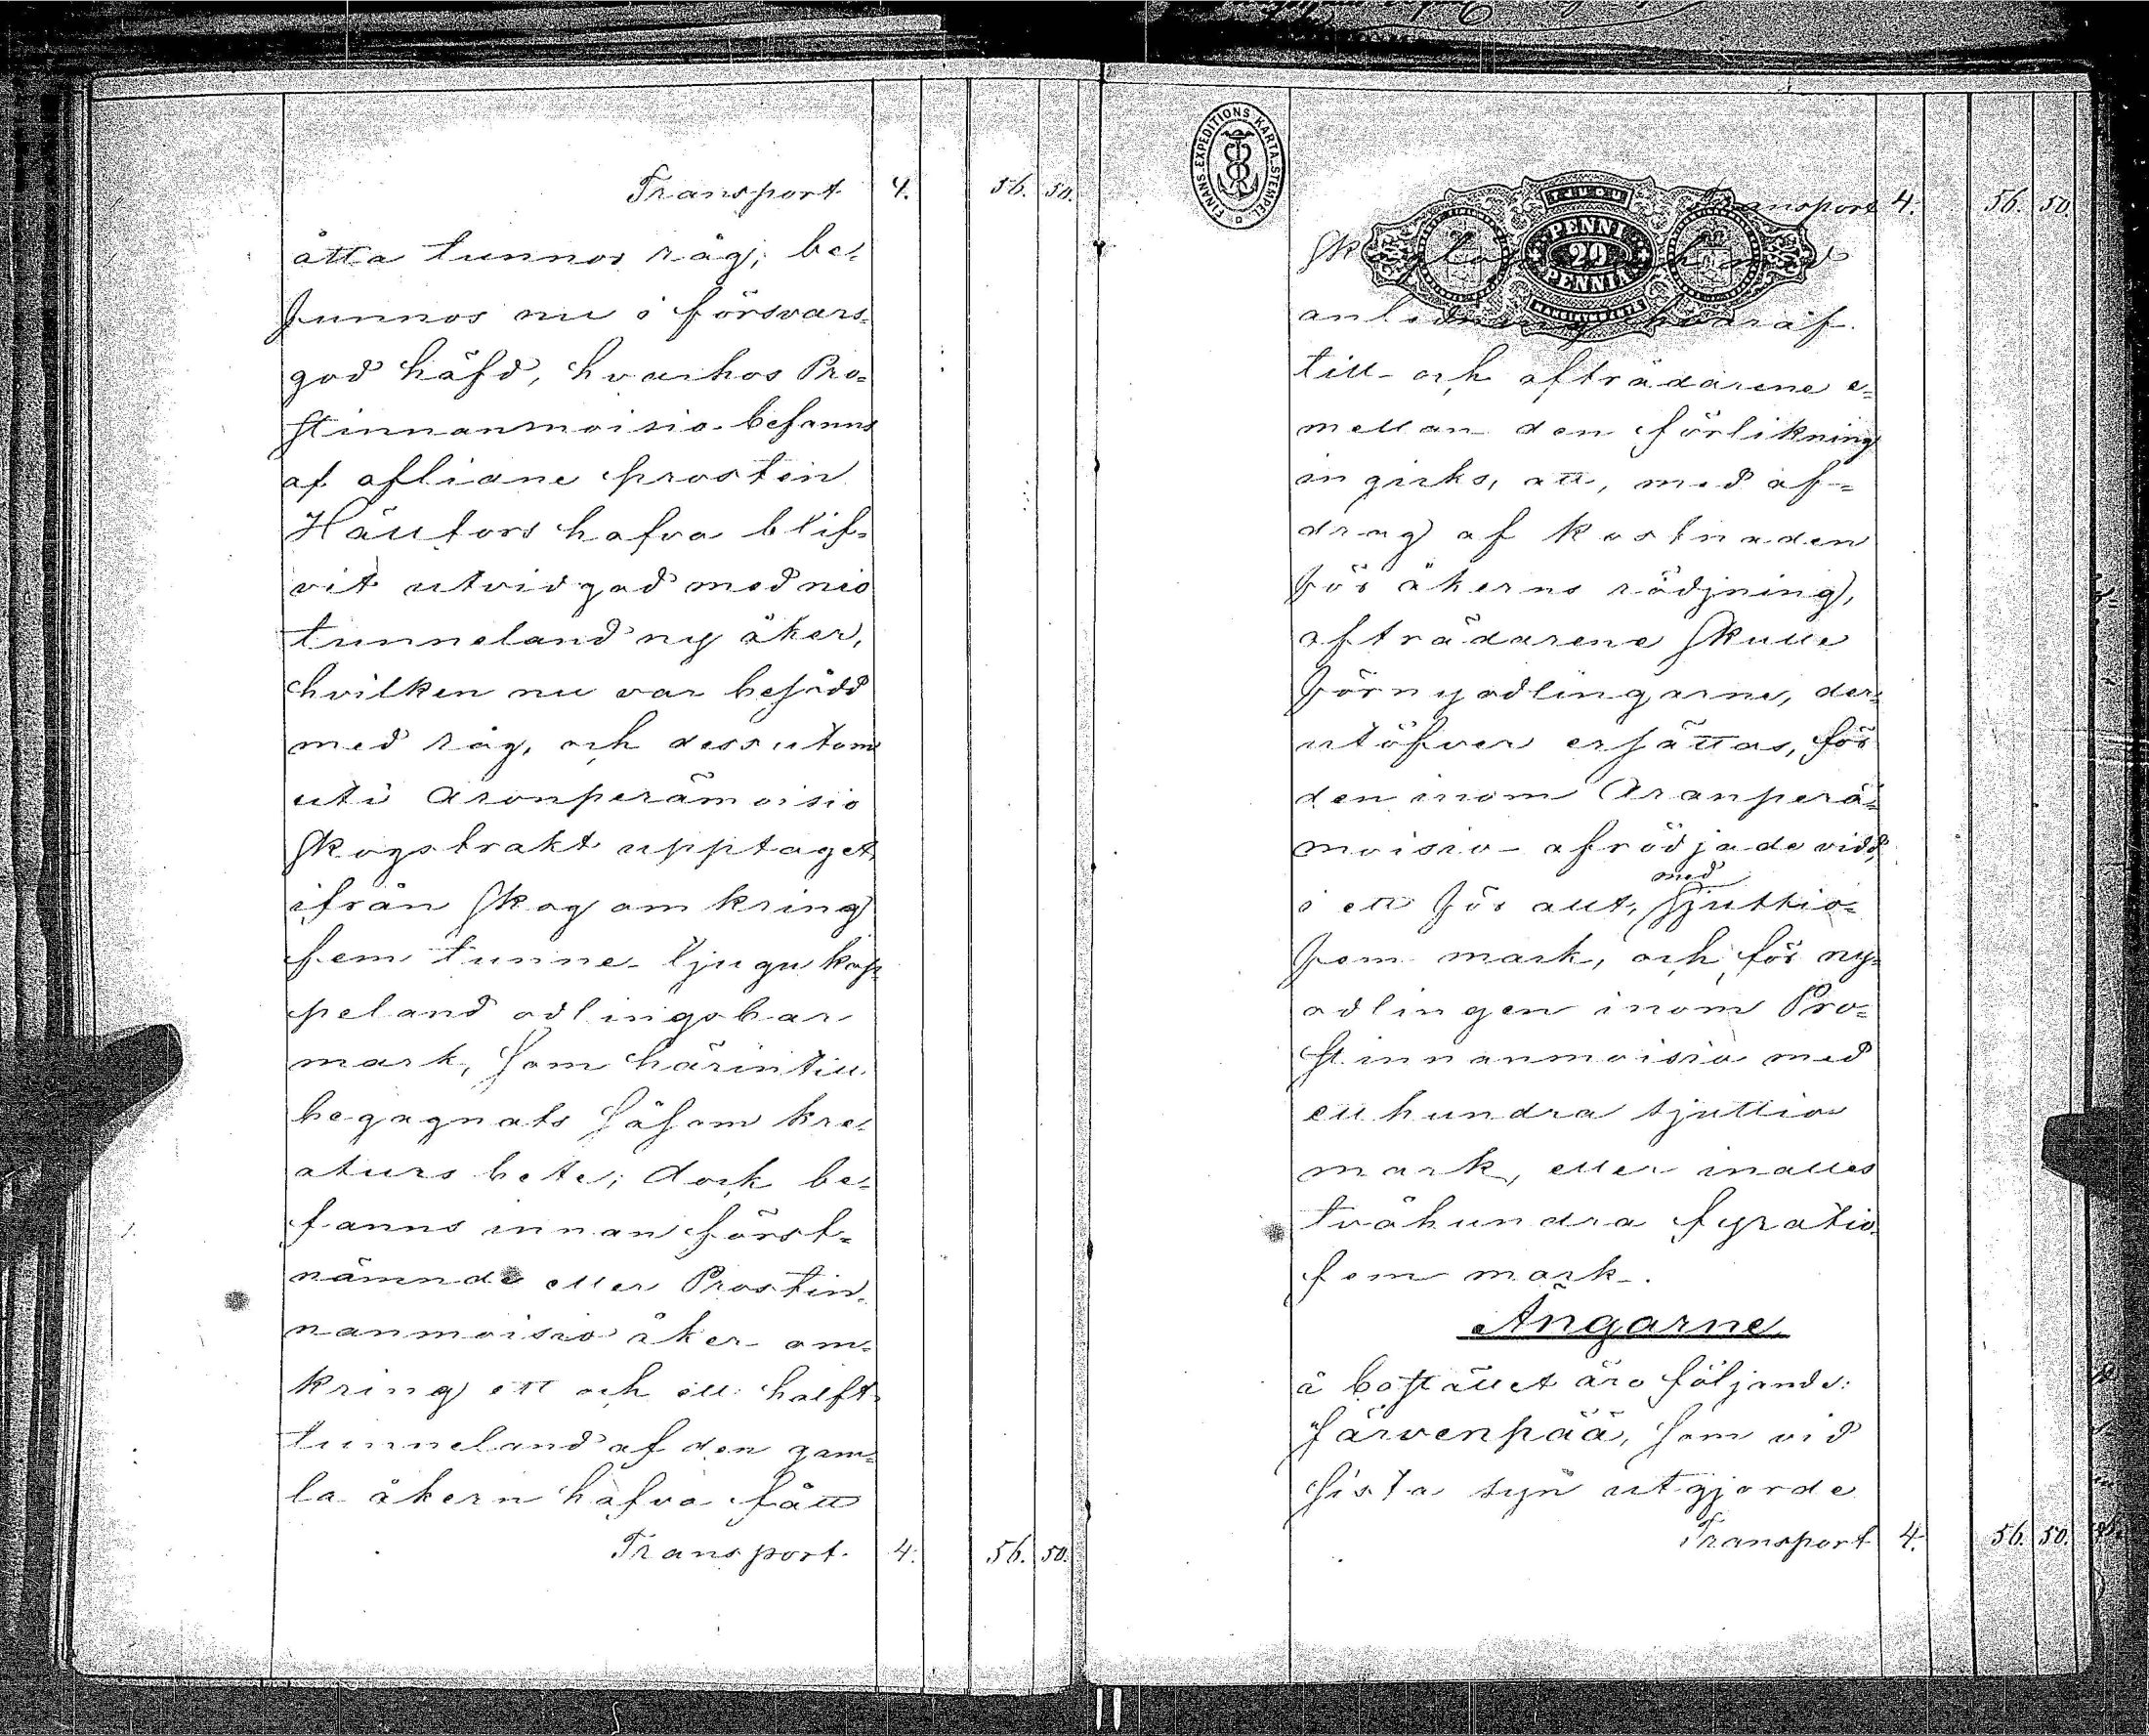 Transport 4. 56. 50.
åtta tunnor råg; be-
funnos nu i försvars-
god häfd, hvarhos Pro-
stinnanmoisio befanns
af aflidne prosten
Hällfors hafva blif-
vit utvidgad med nio
tunneland ny åker,
hvilken nu var besådd
med råg, och dessutom
uti Aronperämoisio
skogstrakt upptaget
ifrån skog omkring
fem tunne- tjugu kap-
peland odlingsbar
mark, som härintill
begagnats såsom kre-
aturs bete; dock be-
fanns innan först-
nämnde eller Prostin-
nanmoisio åker om-
kring ett och ett halft
tunneland af den gam-
la åkern hafva fått
Transport 4. 56. 50.
FINANS-EXPEDITIONS KARTA-STEMPEL
Transport 4. 56. 50
PENNI
20
PENNIÄ
anledning hvaraf
till- och afträdarene e-
mellan den förlikning
ingicks, att, med af-
drag af kostnaden
för åkerns rödjning,
afträdarene skulle
för nyodlingarne, der-
utöfver ersättas, för
den inom Aronperä-
moisio afrödjade vidd,
i ett för allt, med sjuttio-
fem mark, och för ny-
odlingen inom Pro-
stinnanmoisio med
etthundra sjuttio
mark, eller inalles
tvåhundra fyratio-
fem mark.
Ängarne
å bostället äro följande:
Järvenpää, som vid
sista syn utgjorde
Transport 4. 56. 50.